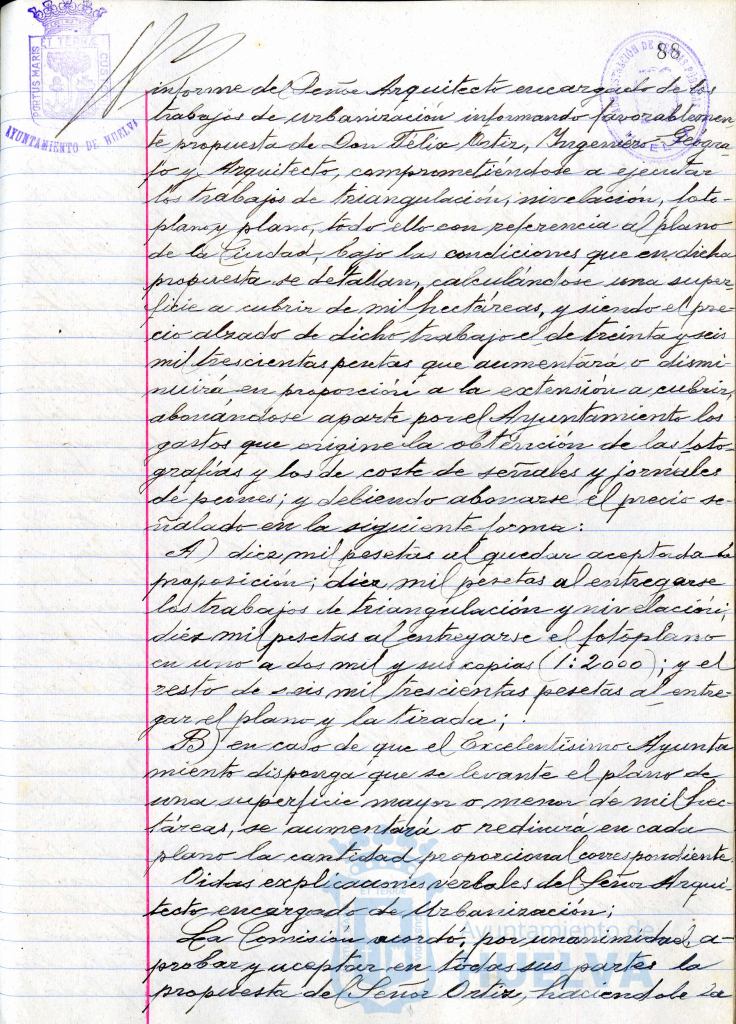 88
PORTUS MARIS ET TERRÆ CUSTODIA
AYUNTAMIENTO DE HUELVA
informe del Señor Arquitecto encargado de los
trabajos de urbanización informando favorablemen-
te propuesta de Don Félix Ortiz, Ingeniero-Geógra-
fo y Arquitecto, comprometiéndose a ejecutar
los trabajos de triangulación, nivelación, foto-
plano y plano, todo ello con referencia al plano
de la Ciudad, bajo las condiciones que en dicha
propuesta se detallan, calculándose una super-
ficie a cubrir de mil hectáreas, y siendo el pre-
cio alzado de dicho trabajo el de treinta y seis
mil trescientas pesetas que aumentará o dismi-
nuirá en proporción a la extensión a cubrir,
abonándose aparte por el Ayuntamiento los
gastos que origine la obtención de las foto-
grafías y los de coste de señales y jornales
de peones; y debiendo abonarse el precio se-
ñalado en la siguiente forma:
A) diez mil pesetas al quedar aceptada la
proposición; diez mil pesetas al entregarse
los trabajos de triangulación y nivelación;
diez mil pesetas al entregarse el fotoplano
en uno a dos mil y sus copias (1:2000); y el
resto de seis mil trescientas pesetas al entre-
gar el plano y la tirada;
B) en caso de que el Excelentísimo Ayunta
miento disponga que se levante el plano de
una superficie mayor o menor de mil hec-
táreas, se aumentará o redimirá en cada
plano la cantidad proporcional correspondiente.
Oidas explicaciones verbales del Señor Arqui-
tecto encargado de Urbanización;
La Comisión acordó, por unanimidad, a-
probar y aceptar en todas sus partes la
propuesta del Señor Ortiz, haciendole la
Ayuntamiento de
HUELVA